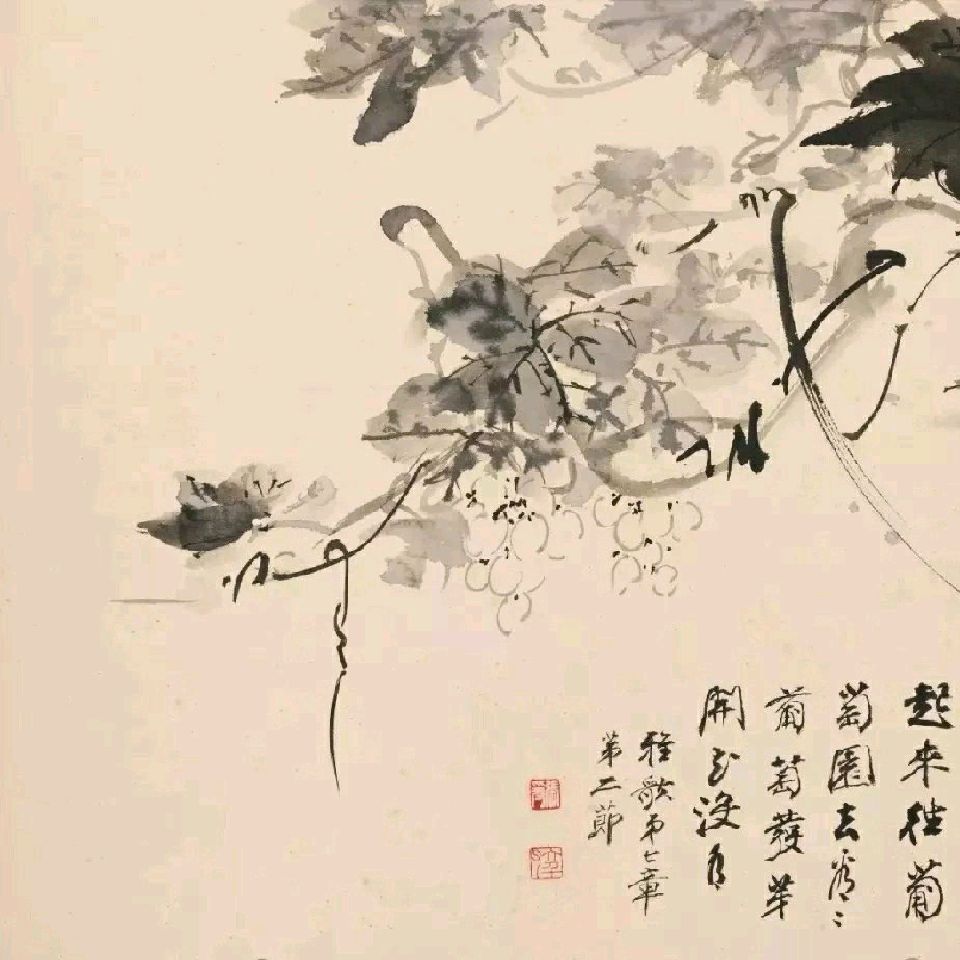 起來往葡
萄園去看看
葡萄發芽
開花沒有
雅歌第七章
第二節